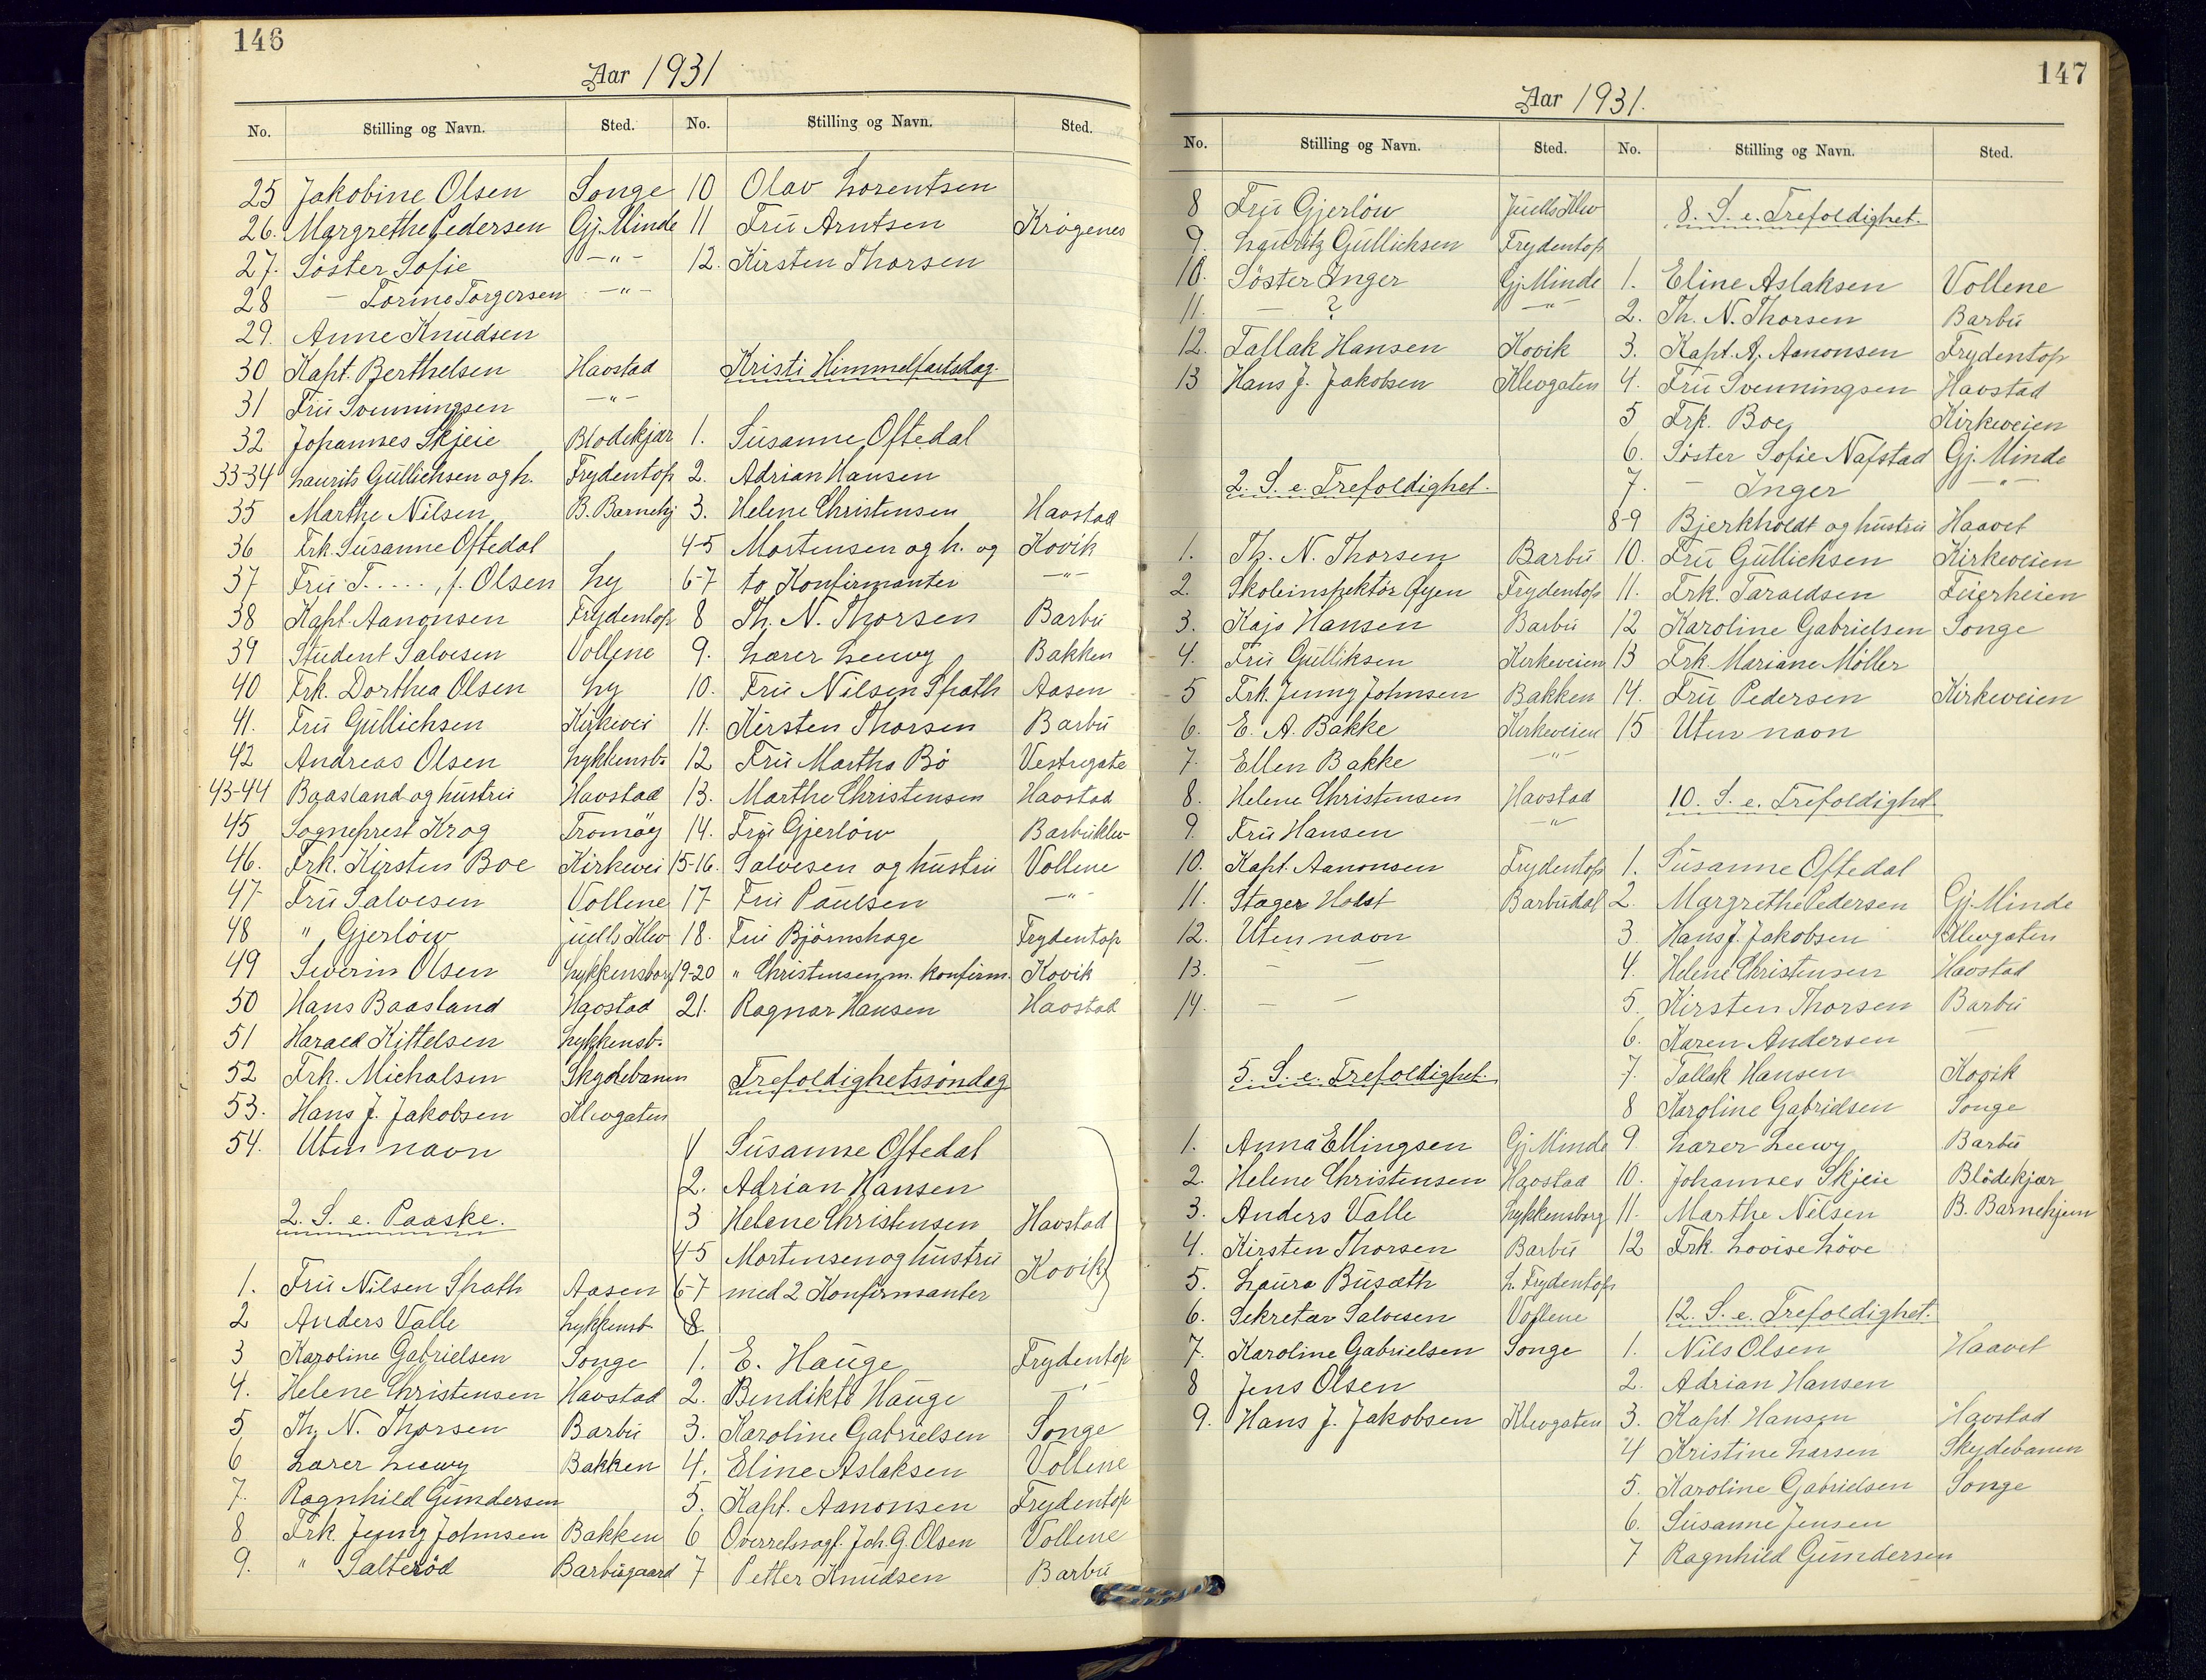 146
Aar 1931
No. Stilling og Navn. Sted. No. Stilling og Navn. Sted.
25 Jakobine Olsen Songe
26. Margrethe Pedersen Gj. Minde
27. Söster Sofie —"—
28 — Torine Torgersen —"—
29. Anne Knudsen
30 Kapt. Berthelsen Havstad
31 Fru Svenningsen —"—
32 Johannes Skjeie Blödekjær
33-34 Laurits Gullichsen og h. Frydentop
35 Marthe Nilsen B. Barnehj
36 Frk. Susanne Oftedal
37 Fru T....., f. Olsen Ly
38 Kapt. Aanonsen Frydentop
39 Student Salvesen Vollene
40 Frk. Dorthea Olsen Ly
41. Fru Gullichsen Kirkevei
42 Andreas Olsen Lykkensb.
43-44 Baasland og hustru Havstad
45 Sogneprest Krog Tromöy
46. Frk. Kirsten Boe Kirkevei
47 Fru Salvesen Vollene
48 " Gjerlöw Juells Klev
49 Severin Olsen Lykkensborg
50 Hans Baasland Havstad
51 Harald Kittelsen Lykkensb.
52 Frk. Michalsen Skydebanen
53. Hans J. Jakobsen Klevgaten
54. Uten navn
2. S. e. Paaske.
1. Fru Nilsen Spath Aasen
2 Anders Valle Lykkensb.
3 Karoline Gabrielsen Songe
4. Helene Christensen Havstad
5 Th. N. Thorsen Barbu
6 Lærer Leewy Bakken
7. Ragnhild Gundersen
8 Frk. Jenny Johnsen Bakken
9. " Salteröd Barbugaard
10 Olav Lorentsen
11 Fru Arntsen Krögenes
12. Kirsten Thorsen
Kristi Himmelfartsdag.
1. Susanne Oftedal
2. Adrian Hansen
3. Helene Christensen Havstad
4-5 Mortensen og h. og Kovik
6-7 to Konfirmanter —"—
8 Th. N. Thorsen Barbu
9. Lærer Leewy Bakken
10. Fru Nilsen Spath Aasen
11. Kirsten Thorsen Barbu
12 Fru Martha Bö Vestregate
13. Marthe Christensen Havstad
14. Fru Gjerlöw Barbuklev
15-16. Salvesen og hustru Vollene
17 Fru Paulsen —"—
18. Fru Björnshage Frydentop
19-20 " Christensen m. konfirm. Kovik
21. Ragnar Hansen Havstad
Trefoldighetssöndag
1 Susanne Oftedal
2. Adrian Hansen
3 Helene Christensen Havstad
4-5 Mortensen og hustru Kovik
6-7 med 2 Konfirmanter
8
1. E. Hauge Frydentop
2. Bendikte Hauge —"—
3. Karoline Gabrielsen Songe
4. Eline Aslaksen Vollene
5. Kapt. Aanonsen Frydentop
6 Overretssagf. Joh. G. Olsen Vollene
7 Petter Knudsen Barbu
147
Aar 1931.
No. Stilling og Navn. Sted. No. Stilling og Navn. Sted.
8 Fru Gjerlöw Juells Klev
9. Lauritz Gullichsen Frydentop
10. Söster Inger Gj. Minde
11. — ? —"—
12. Tallak Hansen Kovik
13 Hans J. Jakobsen Klevgaten
2. S. e. Trefoldighet.
1. Th. N. Thorsen Barbu
2. Skoleinspektör Öyen Frydentop
3. Kaja Hansen Barbu
4. Fru Gulliksen Kirkeveien
5 Frk. Jenny Johnsen Bakken
6. E. A. Bakke Kirkeveien
7. Ellen Bakke —"—
8. Helene Christensen Havstad
9. Fru Hansen —"—
10. Kapt. Aanonsen Frydentop
11. Stager Holst Barbudal
12. Uten navn
13. — —
14. — —
5. S. e. Trefoldighet.
1. Anna Ellingsen Gj. Minde
2. Helene Christensen Havstad
3. Anders Valle Lykkensborg
4. Kirsten Thorsen Barbu
5. Laura Busæth L. Frydentop
6. Sekretær Salvesen Vollene
7. Karoline Gabrielsen Songe
8 Jens Olsen
9. Hans J. Jakobsen Klevgaten
8. S. e. Trefoldighet.
1. Eline Aslaksen Vollene
2. Th. N. Thorsen Barbu
3. Kapt. A. Aanonsen Frydentop
4. Fru Svenningsen Havstad
5 Frk. Boe Kirkeveien
6. Söster Sofie Nafstad Gj. Minde
7. — Inger —"—
8-9 Bjerkholdt og hustru Haavet
10. Fru Gullichsen Kirkeveien
11. Frk. Taraldsen Feierheien
12 Karoline Gabrielsen Songe
13 Frk. Mariane Möller
14. Fru Pedersen Kirkeveien
15 Uten navn
10. S. e. Trefoldighet
1. Susanne Oftedal
2. Margrethe Pedersen Gj. Minde
3 Hans J. Jakobsen Klevgaten
4. Helene Christensen Havstad
5. Kirsten Thorsen Barbu
6. Karen Andersen —
7. Tallak Hansen Kovik
8 Karoline Gabrielsen Songe
9 Lærer Leewy Barbu
10. Johannes Skjeie Blödekjær
11. Marthe Nilsen B. Barnehjem
12 Frk. Lovise Löve
12. S. e. Trefoldighet.
1. Nils Olsen Haavet
2. Adrian Hansen
3. Kapt. Hansen Havstad
4 Kristine Larsen Skydebanen
5. Karoline Gabrielsen Songe
6. Susanne Jensen
7 Ragnhild Gundersen